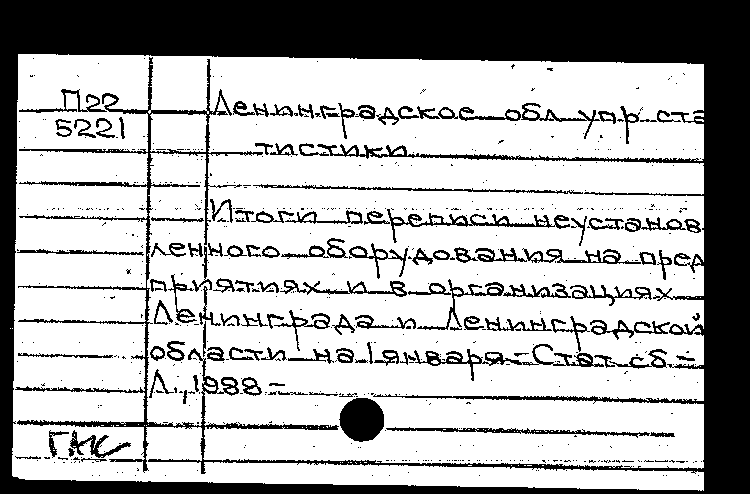 П22
5221
Ленинградское обл упр ста
тистики
Итоги переписи неустанов
ленного оборудования на пред
приятиях и в организациях
Ленинграда и Ленинградской
области на 1 января.- Стат сб.-
Л., 1988 -
ГАК